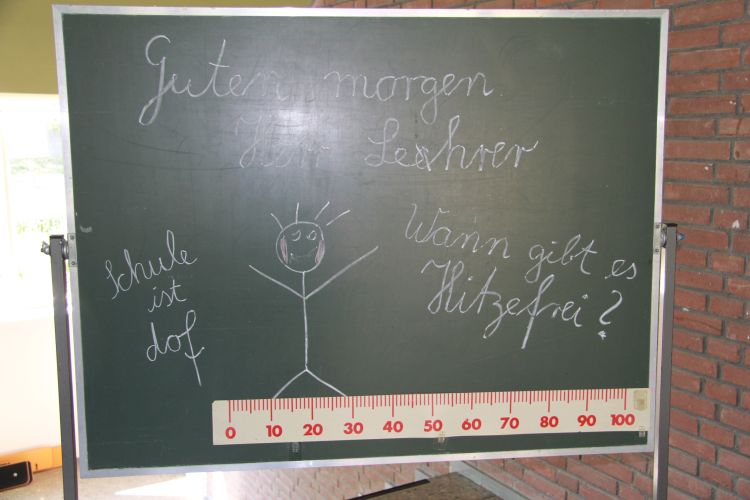 Guten morgen
Herr Lexhrer
Schule
ist
dof
Wann gibt es
Hitzefrei?
0 10 20 30 40 50 60 70 80 90 100